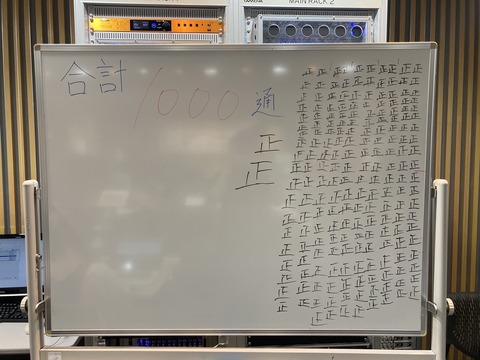 MAIN RACK 2
合計 1000 通
正
正
正正正正正正正正正正
正正正正正正正正正正
正正正正正正正正正正
正正正正正正正正正正
正正正正正正正正正正
正正正正正正正正正正
正正正正正正正正正正
正正正正正正正正正正
正正正正正正正正正正
正正正正正正正正正正
正正正正正正正正正正
正正正正正正正正正正
正正正正正正正正正正
正正正正正正正正正正
正正正正正正正正正正
正正正正正正正正正
正正正正正正正正正
正正正正正正正正正
正正正正正正正正
正正正正